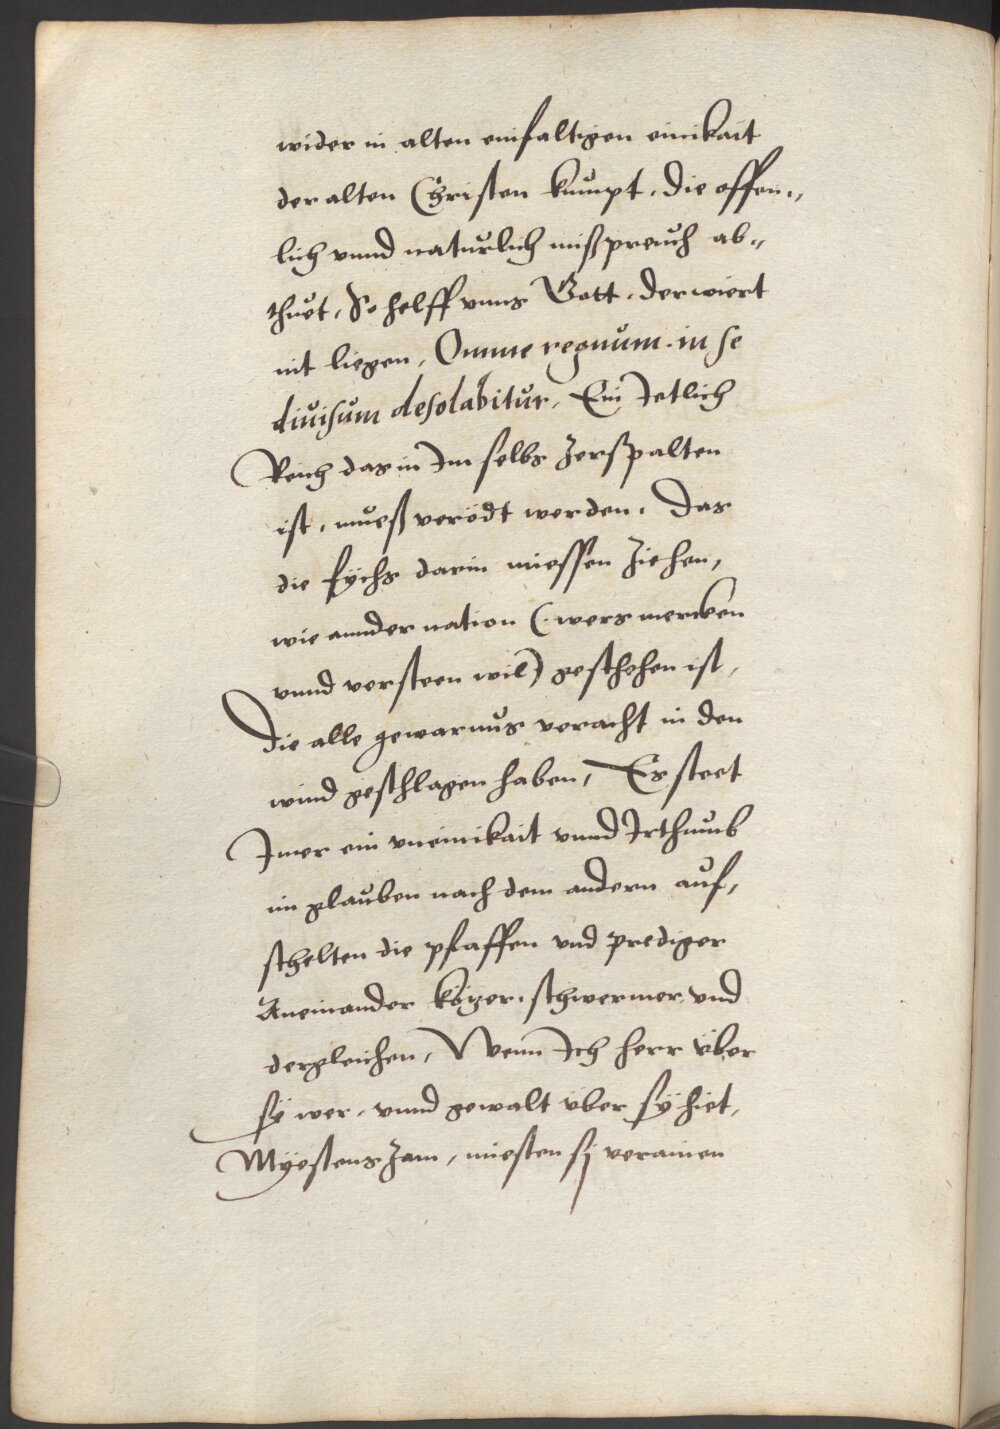 wider in alten einfaltigen einikait
der alten Christen kumpt. die offen„
lich vnnd naturlich mißpreuch ab„
thuet. So helff vnns Gott. der wiert
nit liegen. Omne regnum. in se
diuisum desolabitur. Ein Jetlich
Reich das in Im selbs zerspalten
ist, mueß verödt werden. Das
die fychs darin miessen ziehen,
wie annder nation (wers mercken
vnnd versteen wil) geschehen ist,
Die alle gewarnus veracht in den
wind geschlagen haben, Es steet
Jmer ein vneinikait vnnd Jrthumb
im glauben nach dem andern auf,
schelten die pfaffen vnd prediger
Aneinander közer. schwermer vnd
dergleichen, Wenn Ich herr über
sÿ wer. vnnd gewalt über sÿ hiet,
Myestens zam, miesten sj verainen